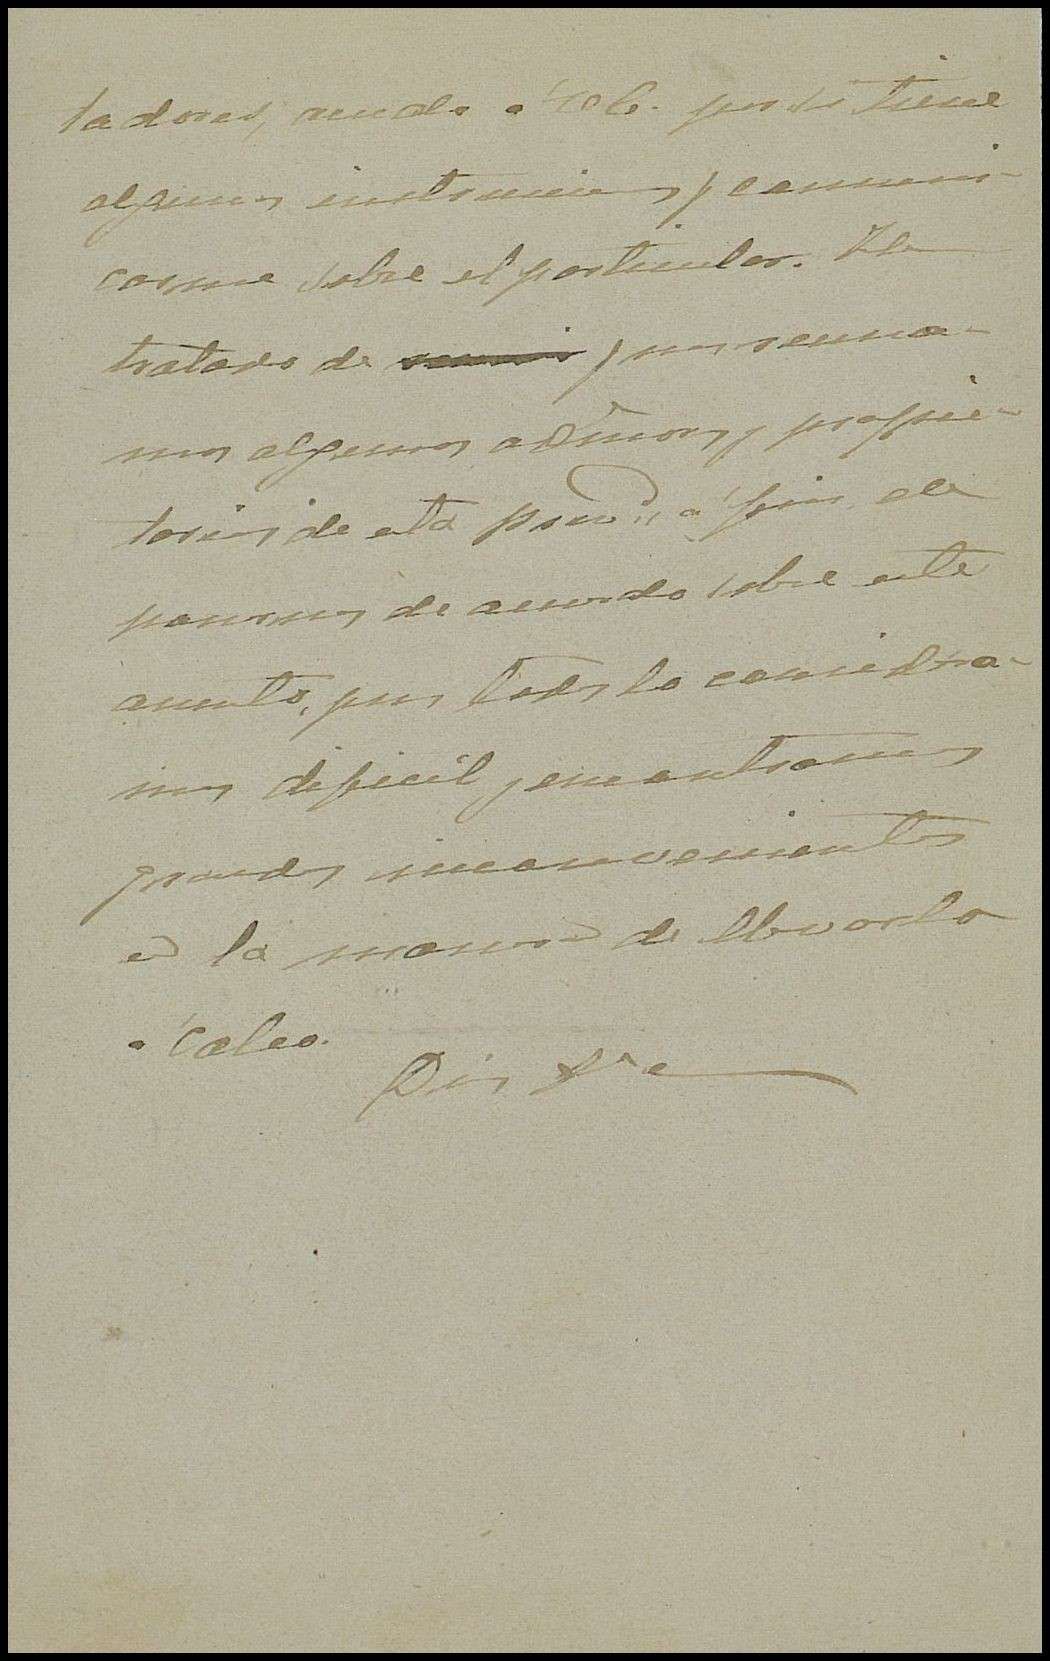 tadores, acudo a Vd. por si tiene
algunas instrucciones q comuni-
carme sobre el particular. He
tratado de nos reuna-
mos algunos admores y propie-
tarios de esta á fin de
ponernos de acuerdo sobre este
asunto, pues todos lo considera-
mos dificil y encontramos
grandes inconvenientes
en la manera de llevarlo
a cabo.
Dios &a